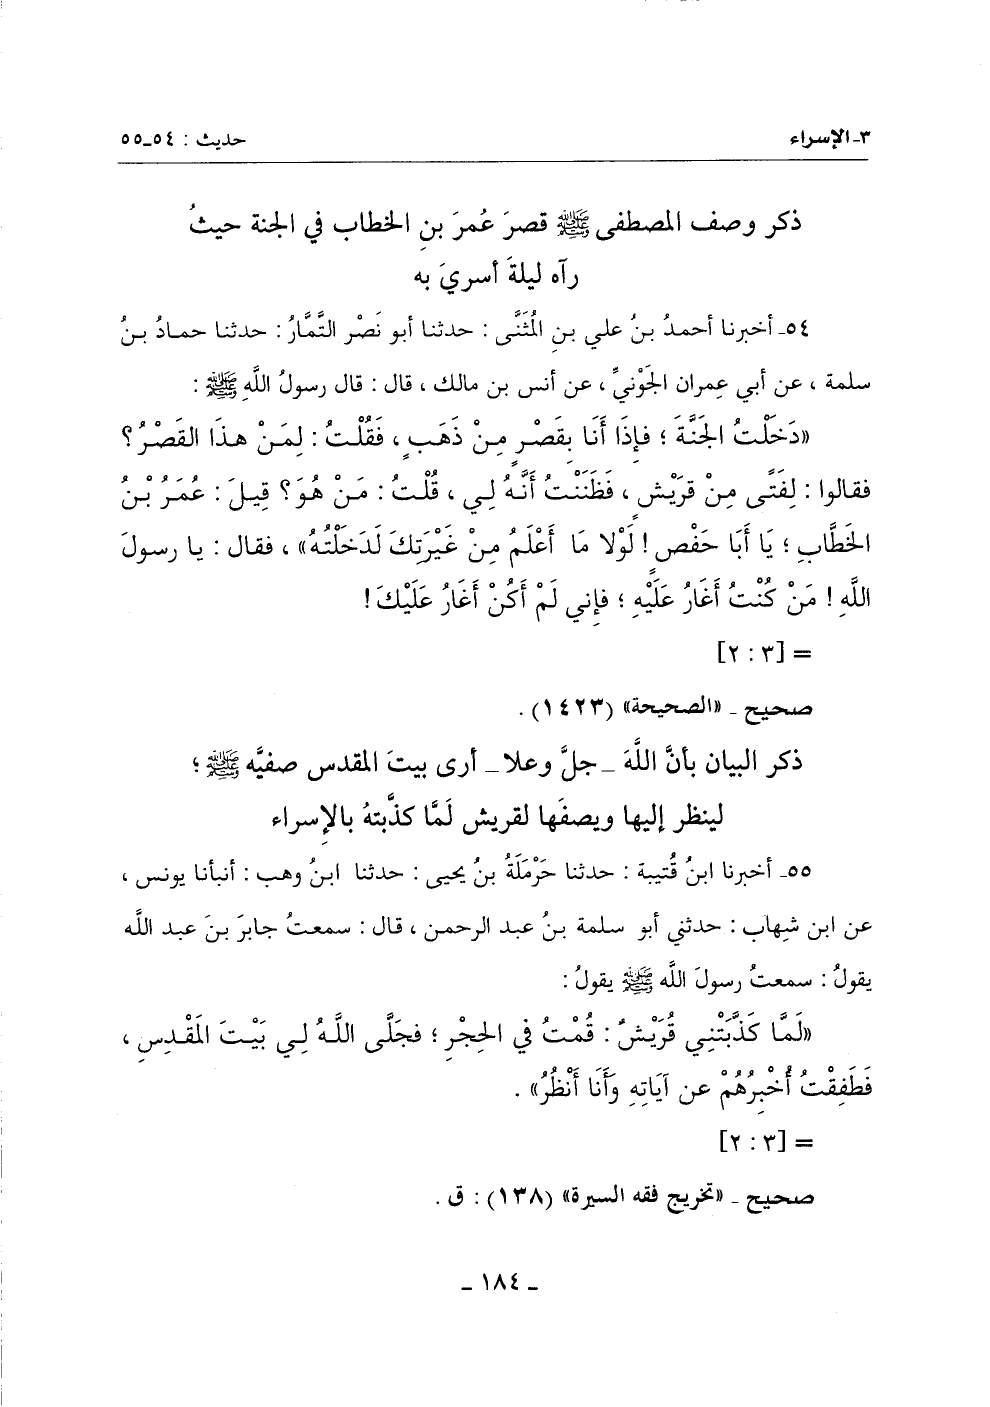 ٣-الإسراء
حديث : ٥٤-٥٥
ذكر وصف المصطفى ﷺ قصرَ عُمرَ بنِ الخطاب في الجنة حيثُ
رآه ليلةَ أسريَ به
٥٤- أخبرنا أحمدُ بنُ علي بنِ المُثَنَّى : حدثنا أبو نَصْر التَّمَّارُ : حدثنا حمادُ بنُ
سلمة ، عن أبي عِمران الجَوْنيِّ ، عن أنس بن مالك ، قال : قال رسولُ اللَّهِ ﷺ :
«دَخَلْتُ الجَنَّةَ ؛ فإذَا أَنَا بقَصْرٍ مِنْ ذَهَبٍ ، فَقُلْتُ : لِمَنْ هذَا القَصْرُ ؟
فقالوا : لِفَتًى مِنْ قرَيْشٍ ، فَظَنَنْتُ أَنَّهُ لِي ، قُلْتُ : مَنْ هُوَ ؟ قِيلَ : عُمَرُ بْنُ
الخَطَّابِ ؛ يَا أَبَا حَفْصٍ ! لَوْلا مَا أَعْلَمُ مِنْ غَيْرَتِكَ لَدَخَلْتُهُ» ، فقال : يا رسولَ
اللَّهِ ! مَنْ كُنْتُ أَغَارُ عَلَيْهِ ؛ فإِني لَمْ أَكُنْ أَغَارُ عَلَيْكَ !
= [٣ : ٢]
صحيح ـ «الصحيحة» (١٤٢٣) .
ذكر البيان بأنَّ اللَّهَ ـ جلَّ وعلا ـ أرى بيتَ المقدس صفيَّه ﷺ ؛
لينظر إليها ويصفَها لقريش لَمَّا كذَّبتهُ بالإسراء
٥٥- أخبرنا ابنُ قُتيبة : حدثنا حَرْمَلَةُ بنُ يحيى : حدثنا ابنُ وهب : أنبأنا يونس ،
عن ابن شِهاب : حدثني أبو سلمة بنُ عبد الرحمن ، قال : سمعتُ جابرَ بنَ عبد اللَّه
يقولُ : سمعتُ رسولَ اللَّه ﷺ يقولُ :
«لَمَّا كَذَّبَتْنِي قُرَيْشٌ : قُمْتُ في الحِجْرِ ؛ فجَلَّى اللَّهُ لِي بَيْتَ المَقْدِسِ ،
فَطَفِقْتُ أُخْبِرُهُمْ عن آيَاتِهِ وَأَنَا أَنْظُرُ» .
= [٣ : ٢]
صحيح ـ «تخريج فقه السيرة» (١٣٨) : ق .
ـ ١٨٤ ـ